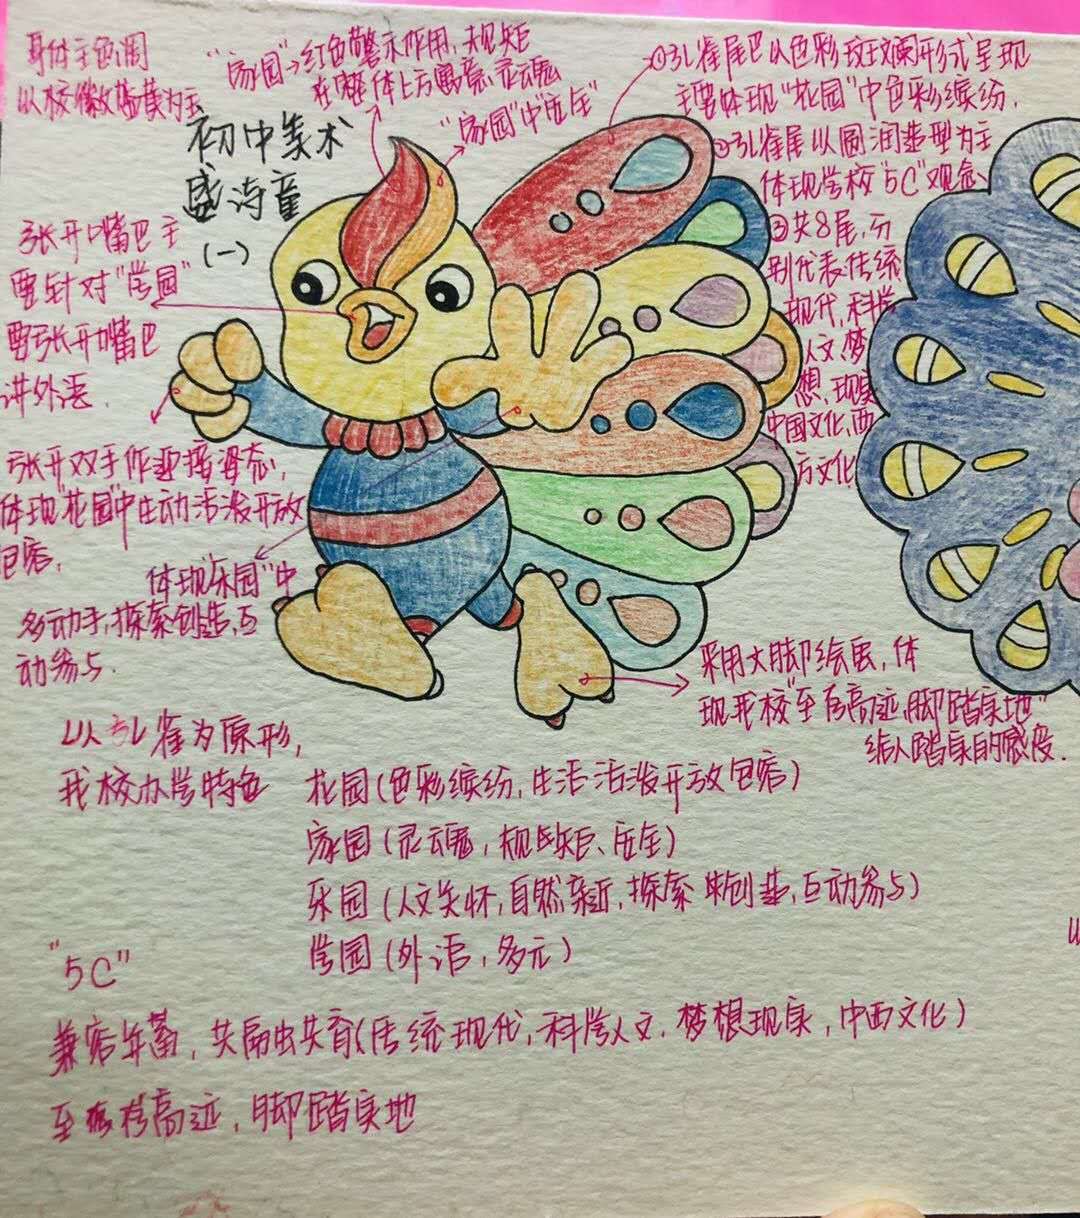 身体主色调
以校徽蓝黄为主
"家园"→红色警示作用,规矩
在整体上方寓意,灵魂
"家园"中"安全"
初中美术
盛诗童
(一)
①孔雀尾巴以色彩斑斓形式呈现
主要体现"花园"中色彩缤纷.
②孔雀尾以圆润造型为主
体现学校"5C"观念
③共8尾,分
别代表传统
现代,科学
人文,梦
想,现实
中国文化,西
方文化
张开嘴巴主
要针对"学园"
要张开嘴巴
讲外语.
张开双手作迎接姿态,
体现"花园"中生动活泼开放
包容.
体现"乐园"中
多动手,探索创造,互
动参与.
采用大脚绘画,体
现我校"至善高远,脚踏实地"
给人踏实的感受.
以孔雀为原形,
我校办学特色
花园(色彩缤纷,生活活泼开放包容)
家园(灵魂,规矩、安全)
乐园(人文关怀,自然亲近,探索创造,互动参与)
学园(外语,多元)
"5C"
兼容并蓄,共育(传统现代,科学人文,梦想现实,中西文化)
高远,脚踏实地